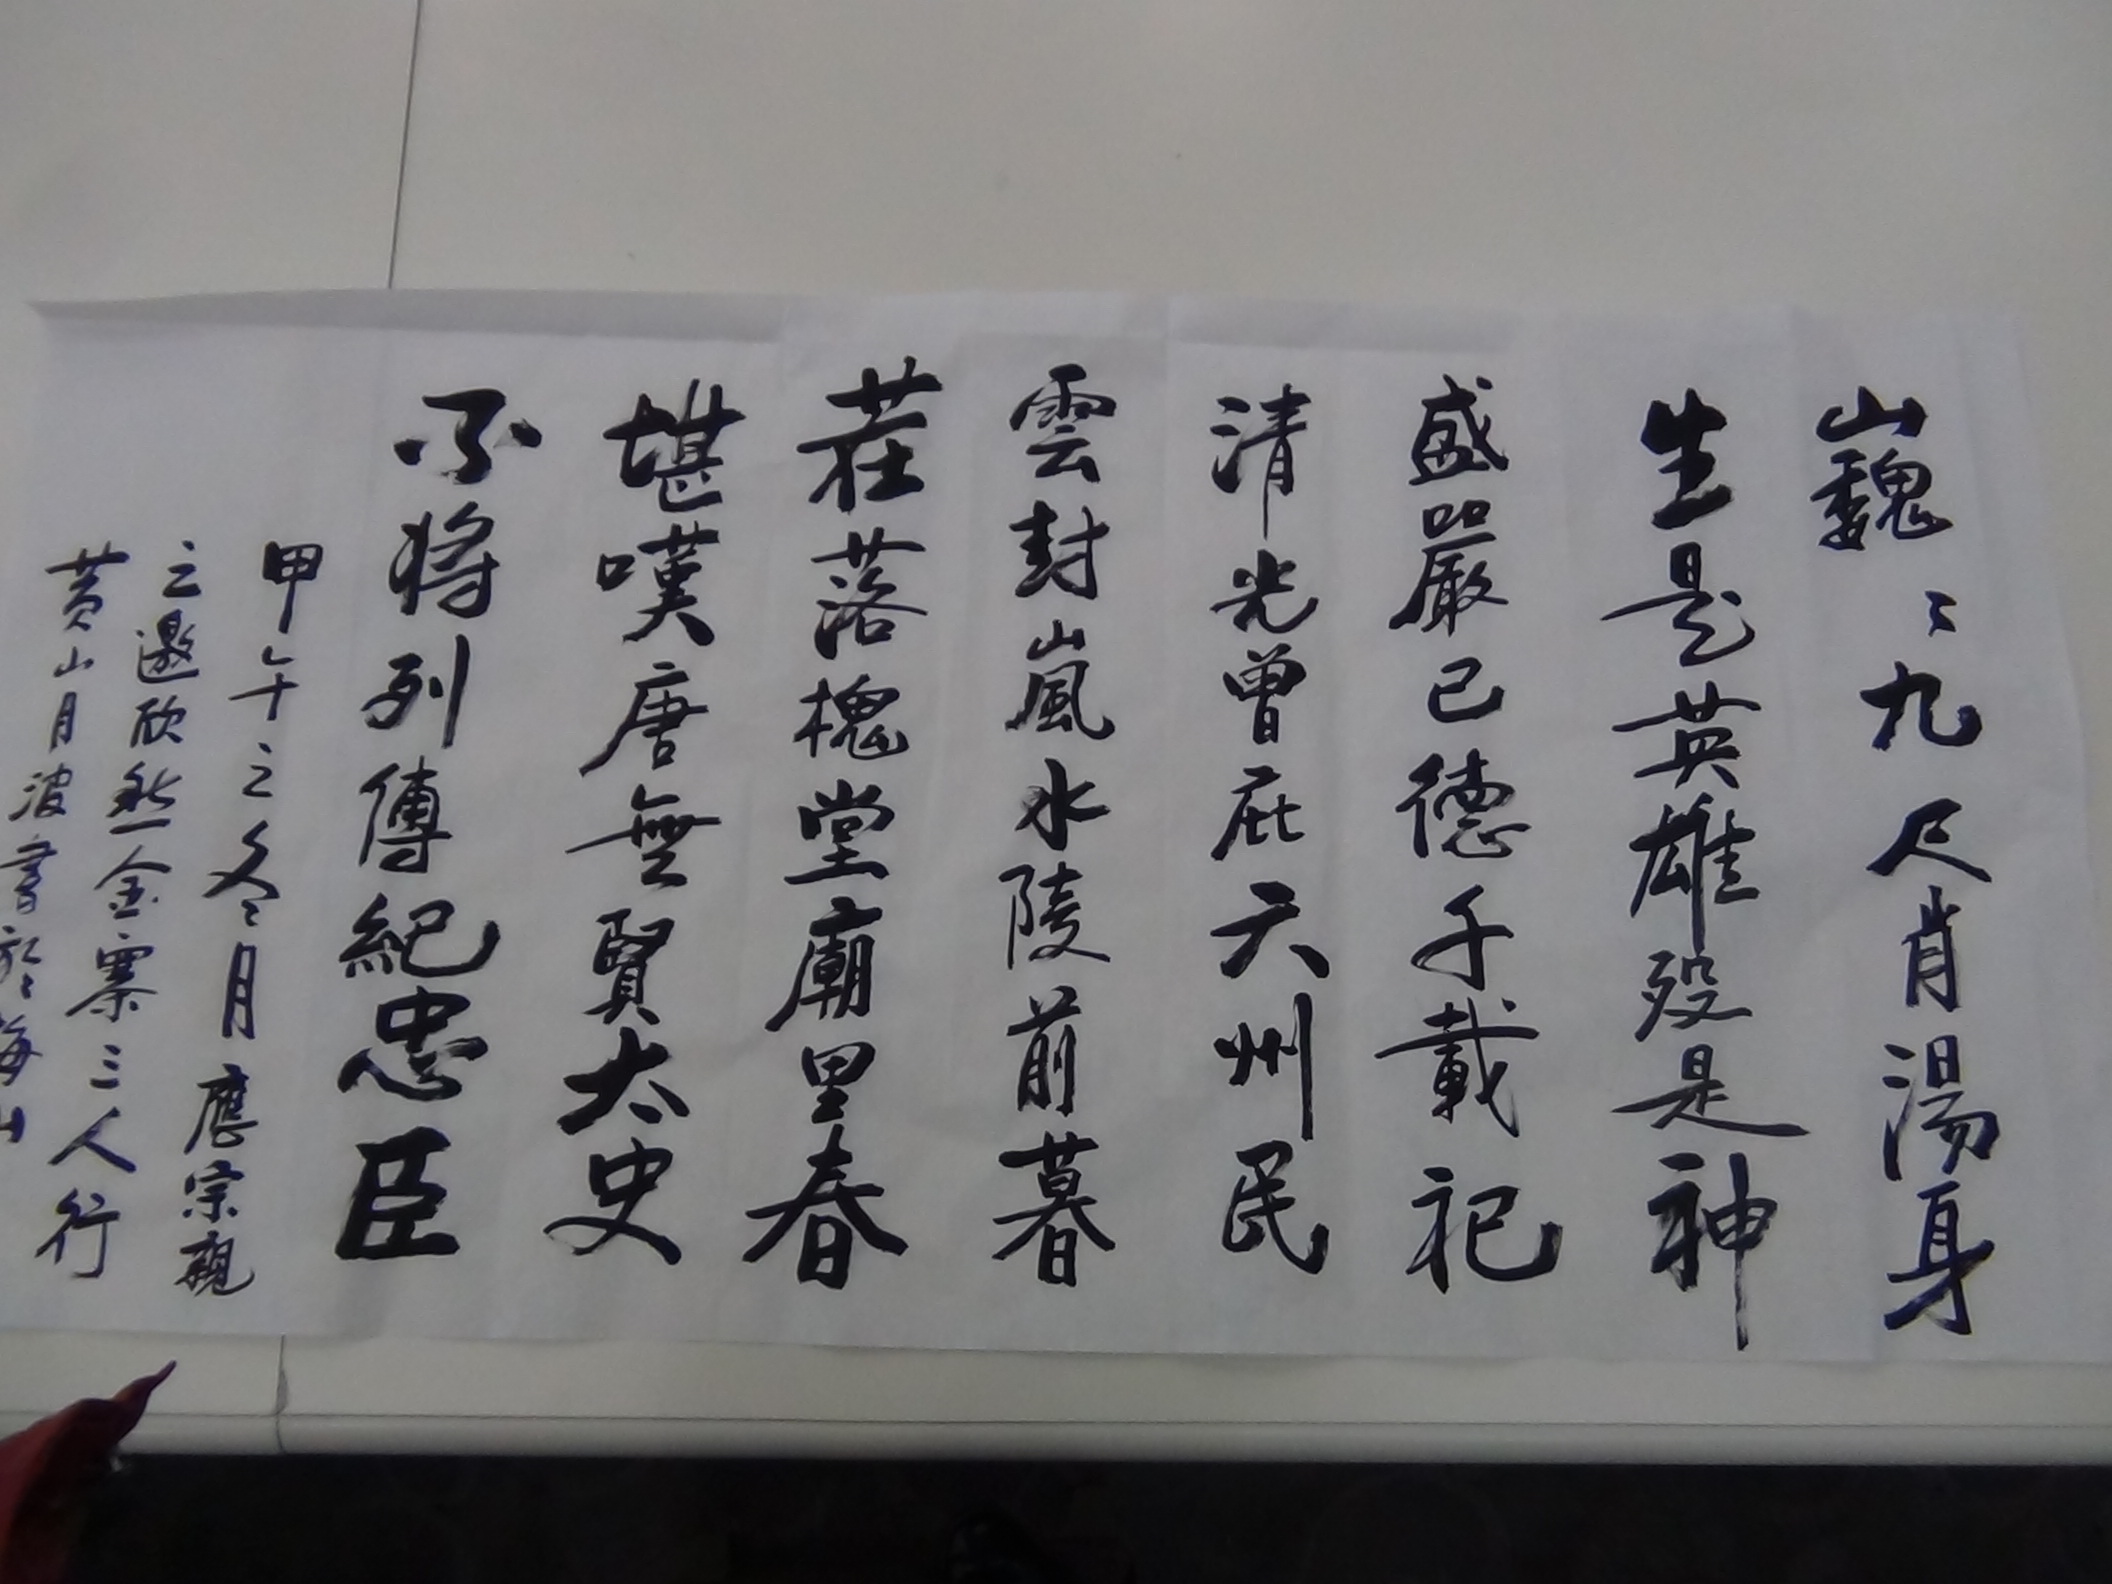 巍〻九尺肖湯身
生是英雄殁是神
盛嚴已德千載祀
清光曾庇六州民
雲封嵐水陵前暮
莊落槐堂廟里春
堪嘆唐無賢太史
不將列傳紀忠臣
甲午之冬月應宗親
之邀欣然金寨三人行
黄山月波書於海山